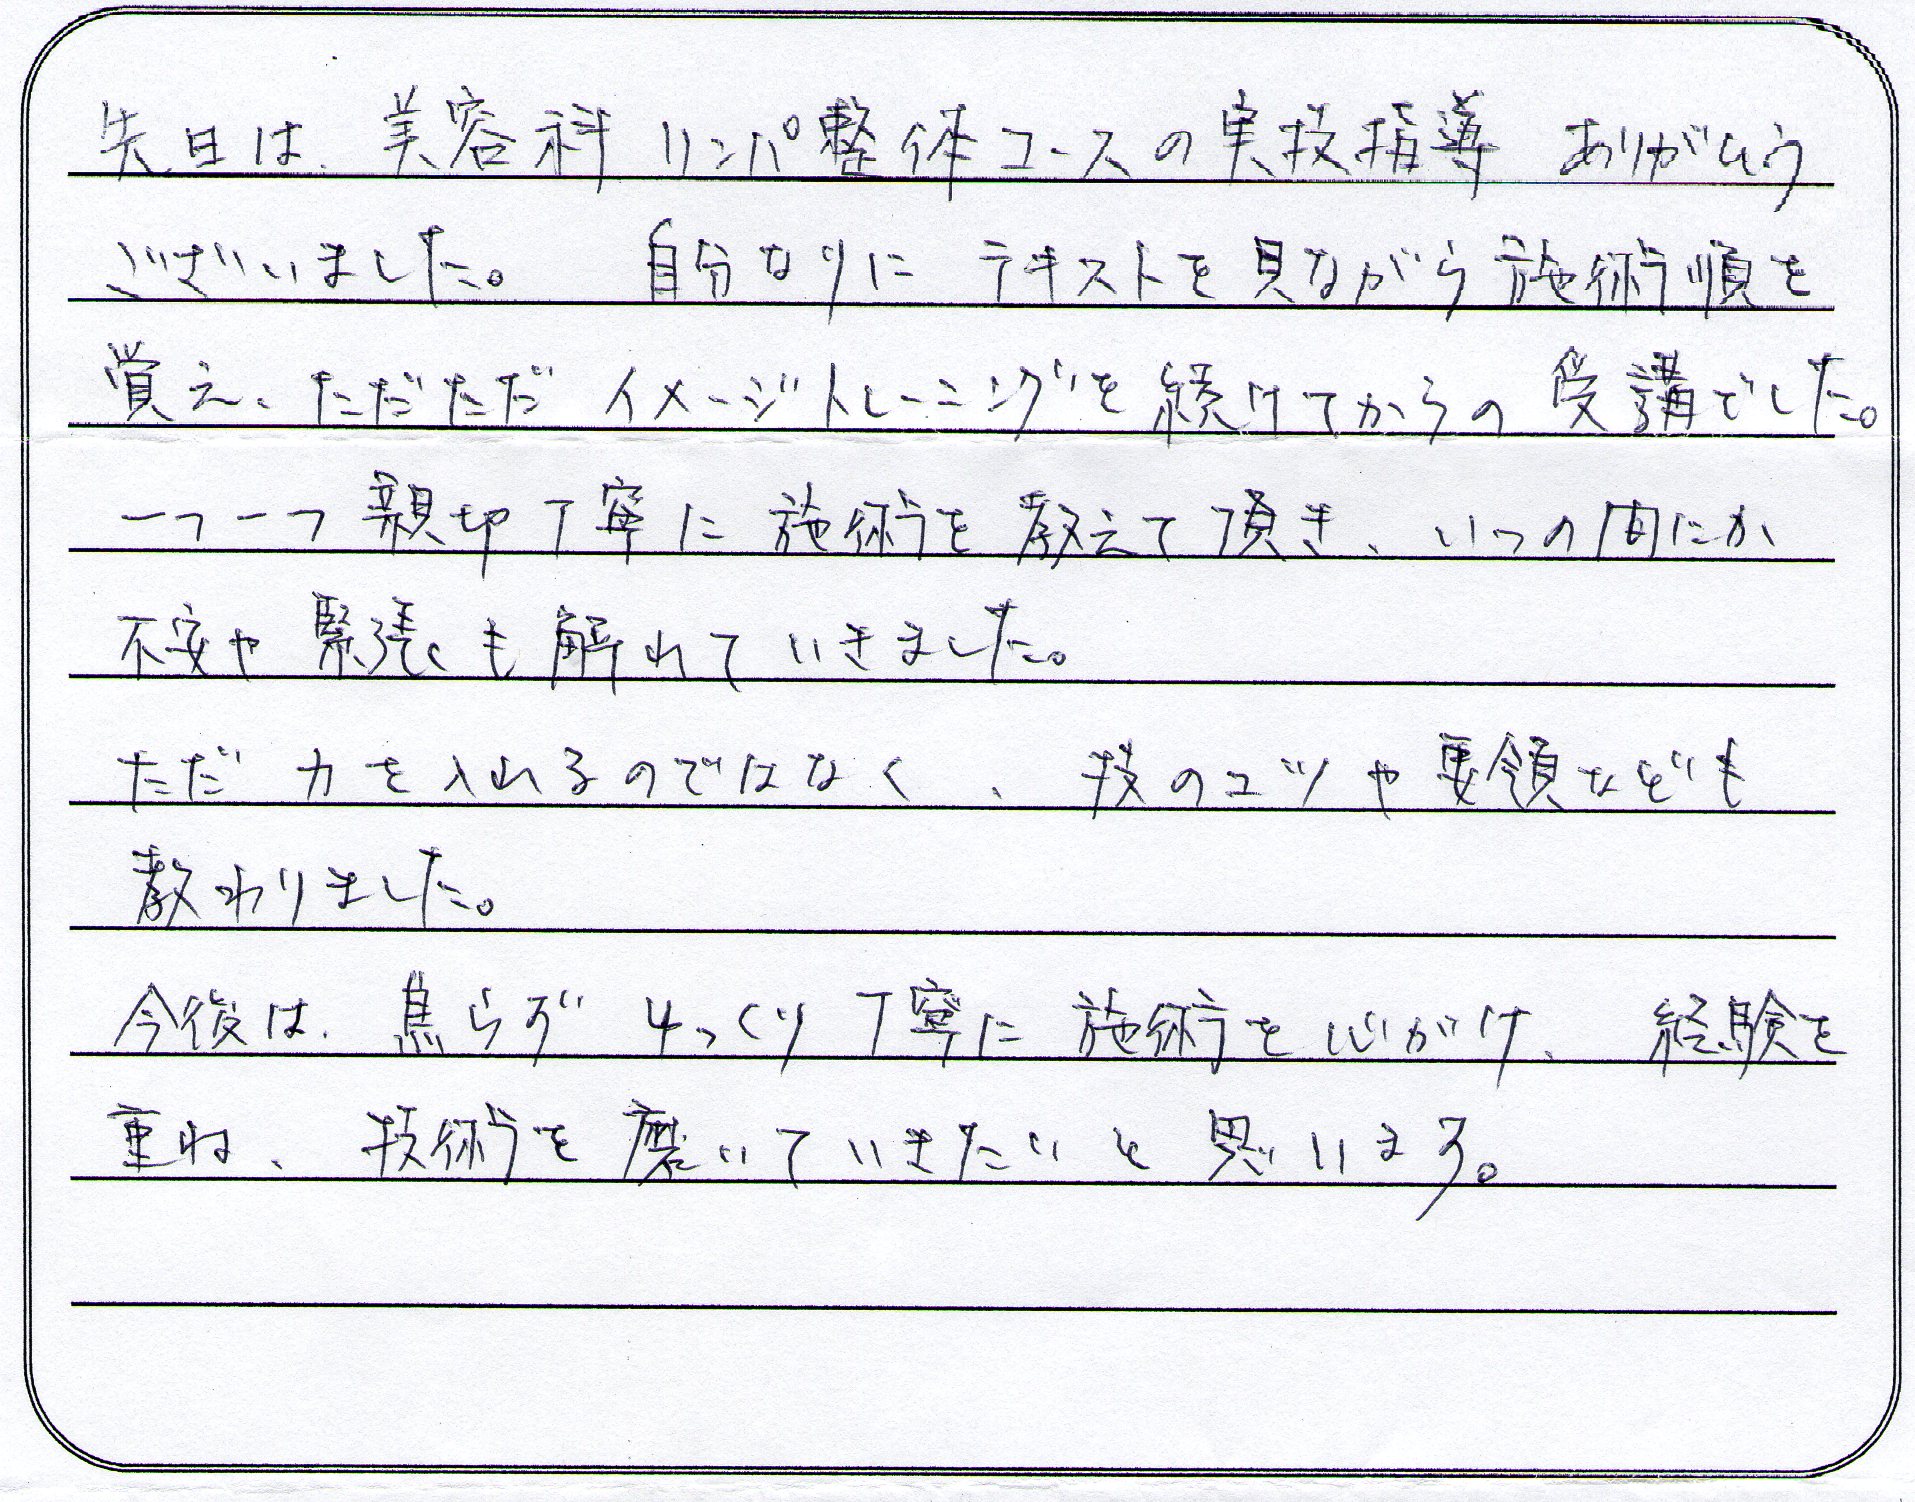 先日は、美容科 リンパ整体コースの実技指導 ありがとう
ございました。 自分なりに テキストを見ながら施術順を
覚え、ただただ イメージトレーニングを続けてからの 受講でした。
一つ一つ親切丁寧に 施術を 教えて頂き、いつの間にか
不安や 緊張も解れていきました。
ただ 力を入れるのではなく、 技のコツや要領なども
教わりました。
今後は、焦らず ゆっくり 丁寧に 施術を心がけ、 経験を
重ね、 技術を磨いていきたいと思います。